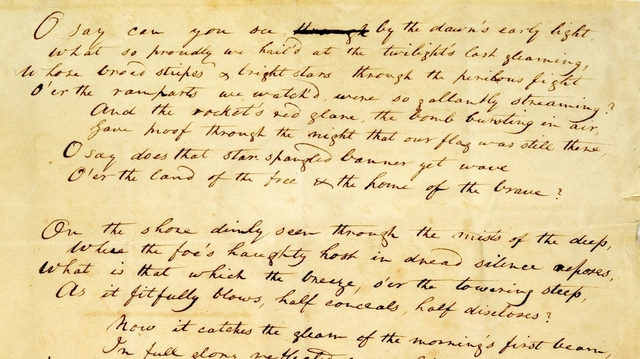 O say can you see through by the dawn's early light,
What so proudly we hail'd at the twilight's last gleaming,
Whose broad stripes & bright stars through the perilous fight
O'er the ramparts we watch'd, were so gallantly streaming?
And the rocket's red glare, the bomb bursting in air,
Gave proof through the night that our flag was still there,
O say does that star spangled banner yet wave
O'er the land of the free & the home of the brave?
On the shore dimly seen through the mists of the deep,
Where the foe's haughty host in dread silence reposes,
What is that which the breeze, o'er the towering steep,
As it fitfully blows, half conceals, half discloses?
Now it catches the gleam of the morning's first beam,
In full glory reflected